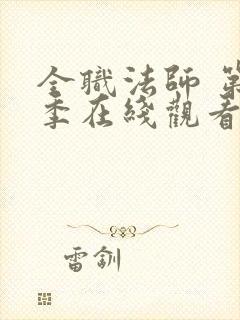 全職法師 第
季在綫觀看
雷釧